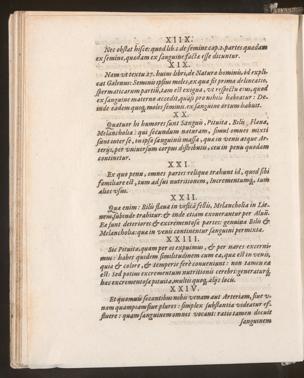 XIIX.
Nec obstat hisce: quod lib. 1. de semine cap. 2. partes quasdam
ex semine, quasdam ex sanguine factas esse dicuntur.
XIX.
Nam vt textu 27. huius libri, de Natura hominis, id expli-
cat Galenus: Seminis ipsius moles, ex qua fit prima delineatio,
spermaticarum partiū, tam est exigua, vt respectu eius, quod
ex sanguine materno accedit, quasi pro nihilo habeatur: De-
inde eadem quoq; moles seminis, ex sanguine ortum habuit.
XX.
Quatuor hi humores sunt Sanguis, Pituita, Bilis Flaua,
Melancholia: qui secundum naturam, simul omnes mixti
sunt inter se, in ipsa sanguinis massa, quae in venis atque Ar-
terijs, per vniuersum corpus distributis, ceu in penu quodam
continetur.
XXI.
Ex quo penu, omnes partes reliquae trahunt id, quod sibi
familiare est, tum ad sui nutritionem, Incrementumq;, tum
alios vsus.
XXII.
Quae enim: Bilis flaua in vesicā fellis, Melancholia in Lie-
nem, subinde trahitur: & inde etiam exoneratur per Aluū.
Ea sunt deteriores & excrementosae partes: genuina Bilis &
Melancholia: quae in venis continentur sanguini permixta.
XXIII.
Sic Pituita, quam per os expuimus, & per nares excerni-
mus: habet quidem similitudinem cum ea, quae est in venis,
quoad colore, & temperie ferè conueniunt: non tamen ea
est: Sed potius excrementum nutritionis cerebri: generaturq;
haec excrementosa pituita, multis quoq; alijs locis.
XXIV.
Et quamuis secantibus nobis venam aut Arteriam, siue v-
nam quampiam siue plures: simplex substantia videatur ef-
fluere: quam sanguinem omnes vocant: ratio tamen docuit
sanguinem